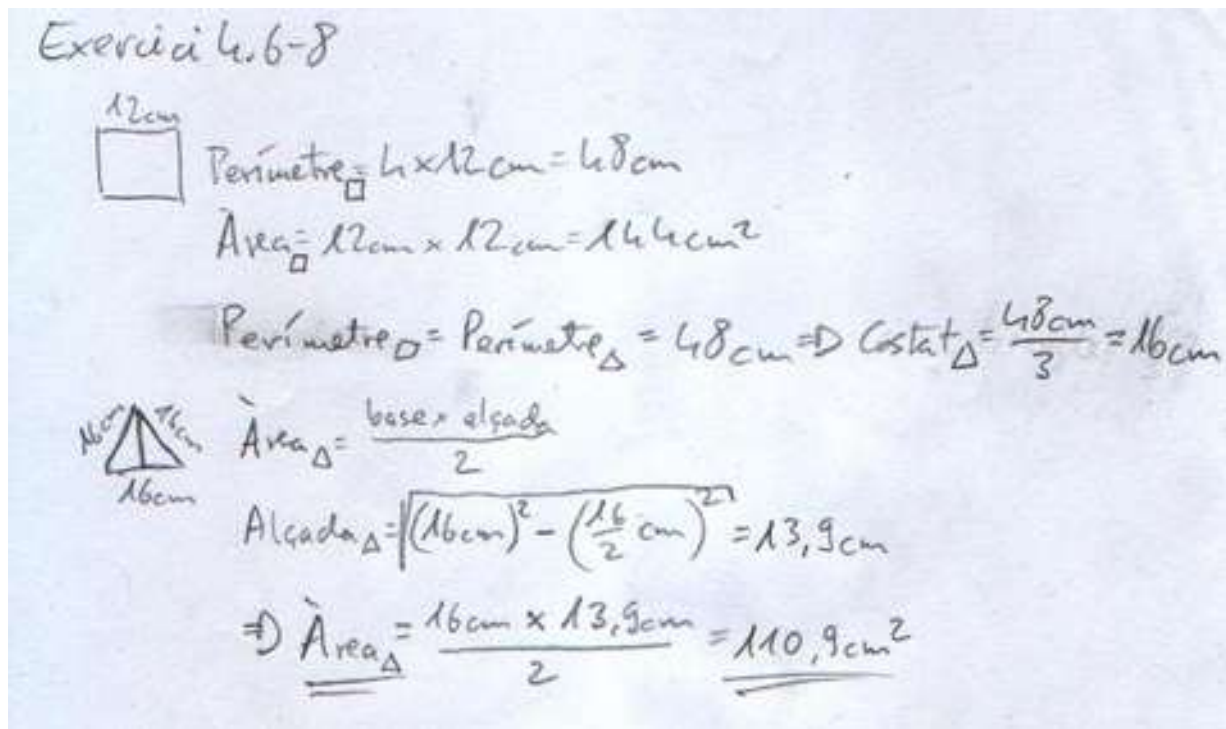 Exercici 4.6-8
12cm
Perímetre□ = 4×12cm = 48cm
Àrea□ = 12cm × 12cm = 144cm²
Perímetre□ = Perímetre△ = 48cm ⇒ Costat△ = 48cm/3 = 16cm
16cm 16cm 16cm
Àrea△ = base × alçada/2
Alçada△ = √((16cm)² - (16/2 cm)²) = 13,9cm
⇒ Àrea△ = 16cm × 13,9cm/2 = 110,9cm²